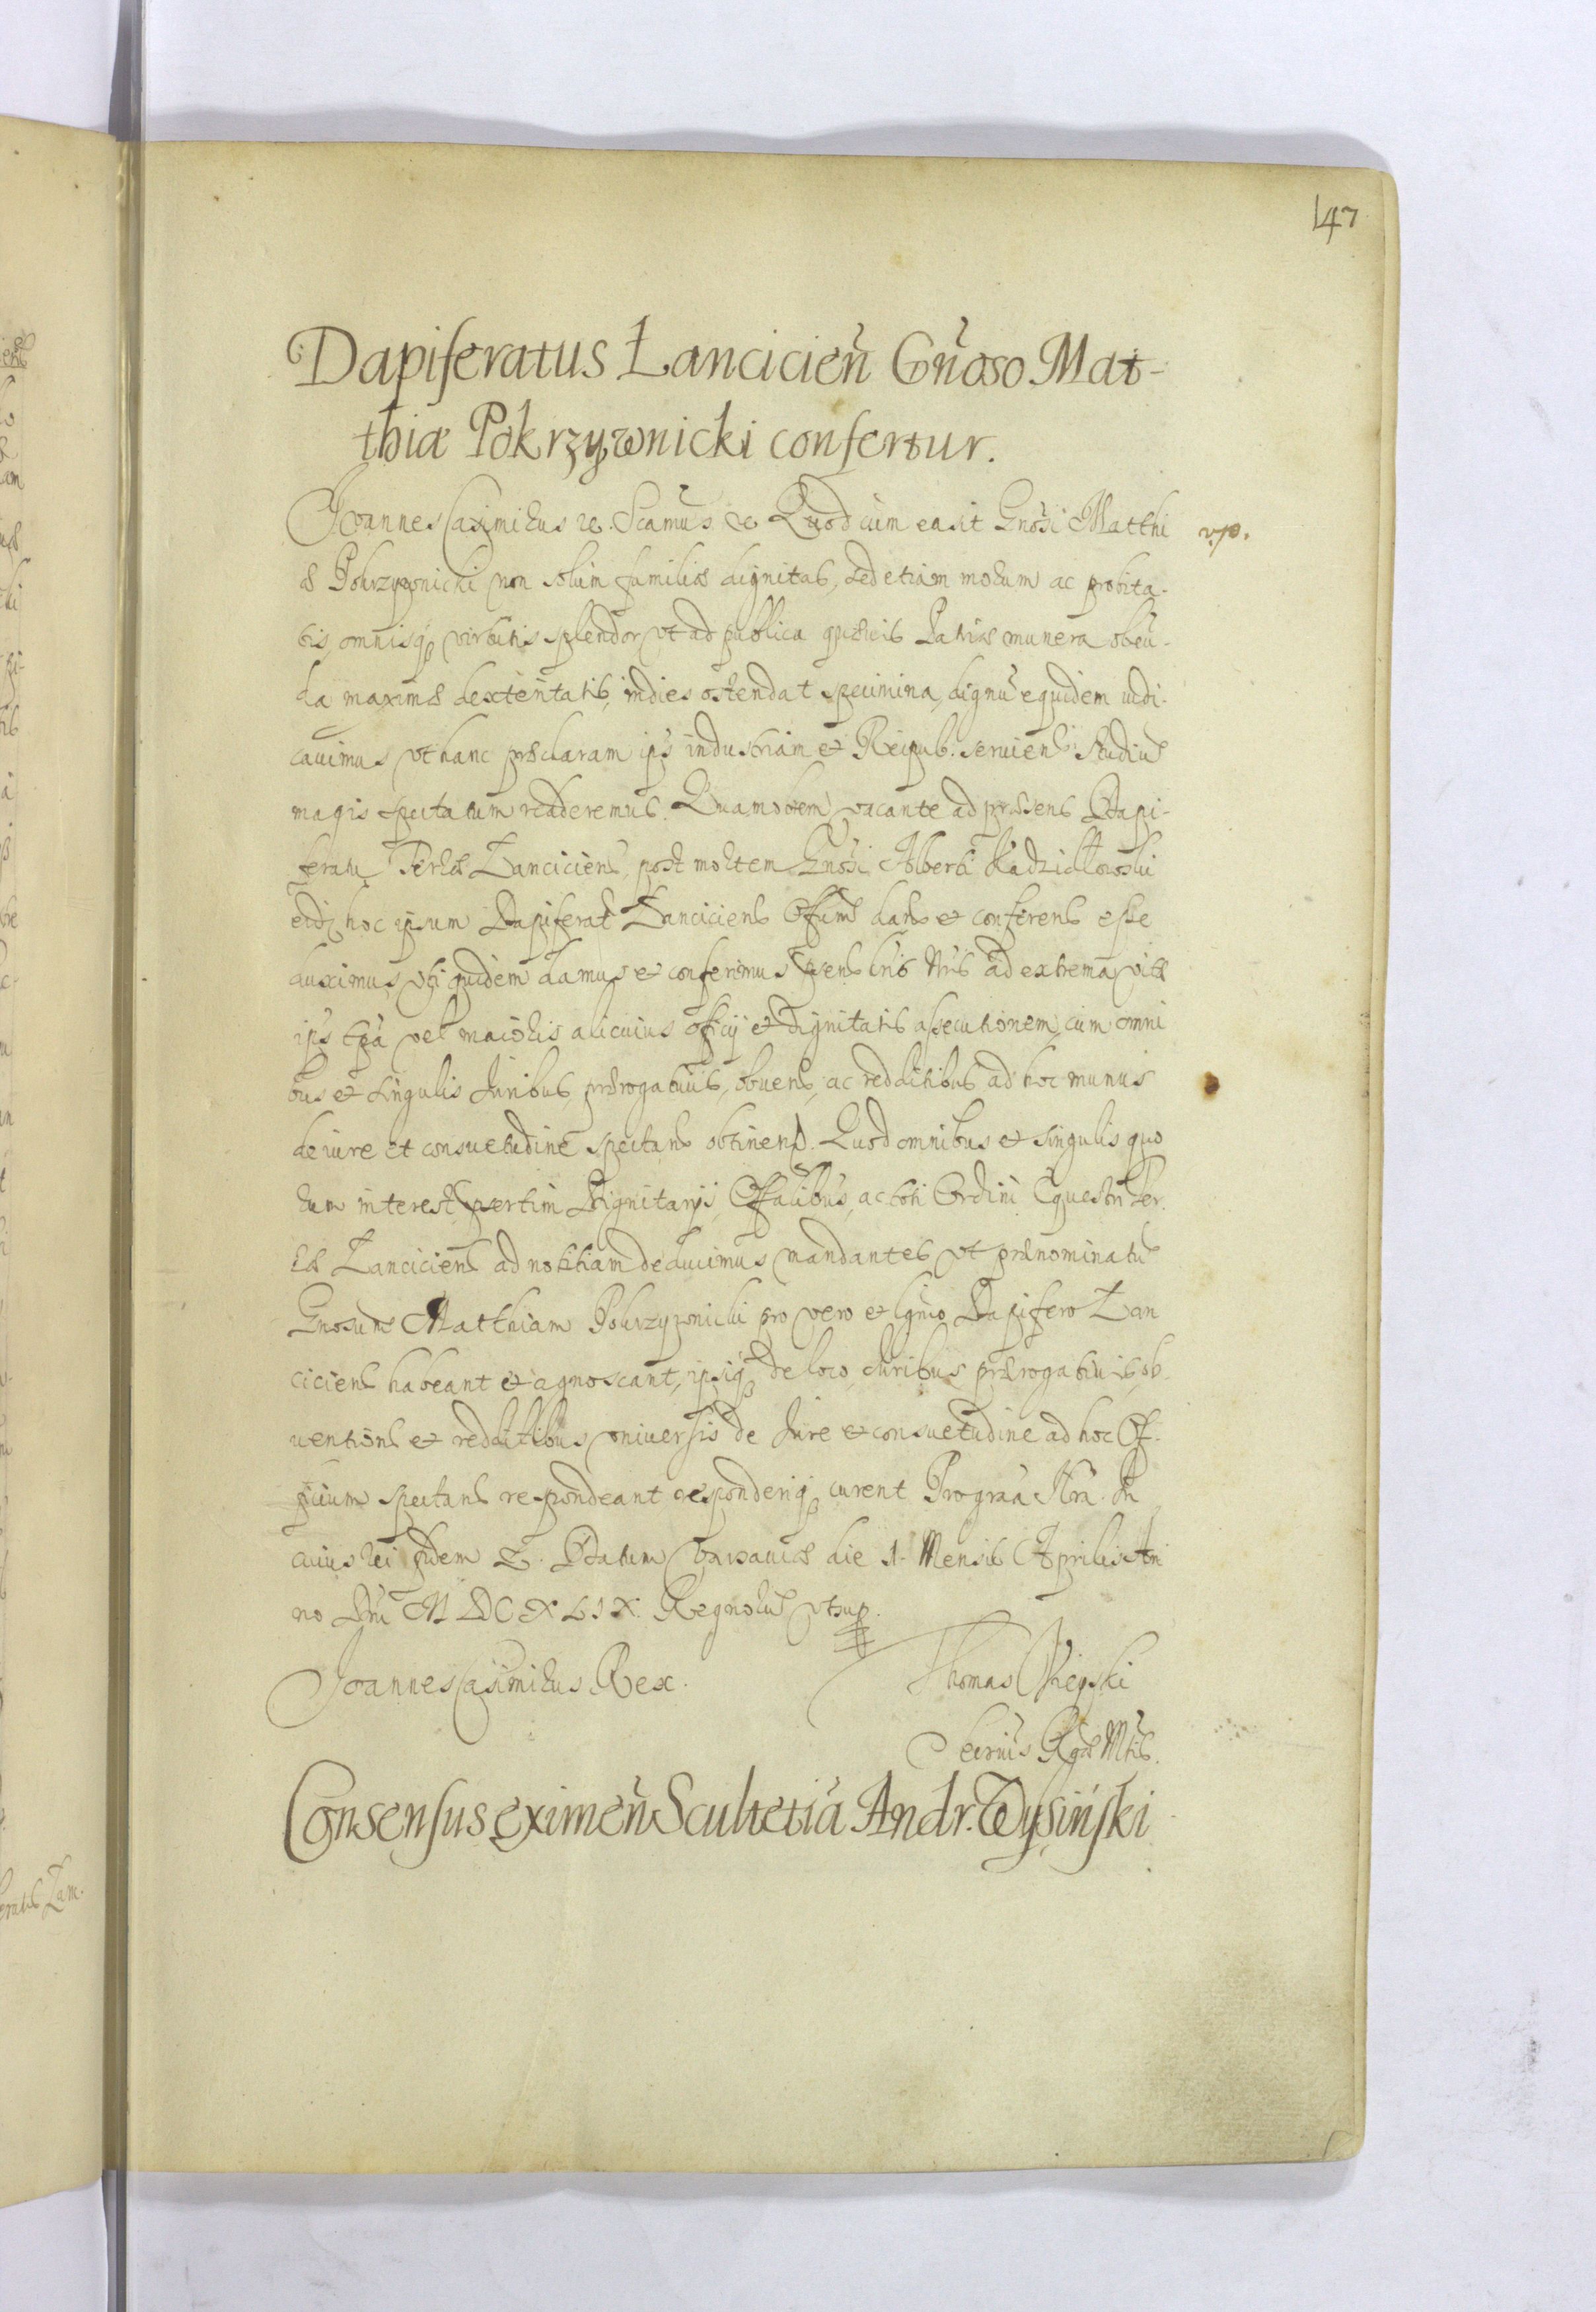 147
Dapiferatus Lancicień Gnoso Mat-
thiæ Pokrzywnicki confertur.
Joannes Casimirus etc. Scamus etc. Quod cum ea sit Gnosi Matthi
v.p.
æ Pokrzywnicki non solum familiæ dignitas, sed etiam morum ac probita-
tis, omnisq virtutis splendor, vt ad publica Patriæ munera obeu-
da maximæ dexteritatis, indies ostendat specimina, dignu equidem iudi-
cauimus vt hanc præclaram ips industriam et Reipub: seruien studiu
magis spectatum redderemus. Quamobrem vacante ad præsens Dapi-
feratu Terræ Lancicien, post mortem Gnosi Alberti Radziątkowski
eidq hoc ipsum Dapiferat Lancicien Offum dan et conferen esse
duximus, vti quidem damus et conferimus psen lris Nris ad extrema vitæ
ips tpa vel maioris alicuius officij et dignitatis assecutionem, cum omni
bus et singulis Juribus, prærogatiuis, obuen, ac redditibus ad hoc munus
de iure et consuetudine spectan obtinen. Quod omnibus et singulis quo
rum interest, psertim Dignitarijs, Offalibus, ac toti Ordini Equestri Ter.
ræ Lancicien ad notitiam deducimus mandantes vt prænominatu
Gnosum Matthiam Pokrzywnicki pro vero et lgtmo Dapifero Lan
cicien habeant et agnoscant, ipsiq de loco, Juribus, prærogatiuis, ob
uention et redditibus vniuersis de Jure et consuetudine ad hoc Of-
ficium spectan respondeant responderiq curent Pro graa Nra. In
cuius rei fidem etc. Datum Varsauiæ die 1. Mensis Aprilis An
no Dni MDCXLIX. Regnoru vt sup.
Joannes Casimirus Rex. Thomas
Secrius Rgæ Mtis.
Consensus eximeń Scultetiā Andr. Wysiński